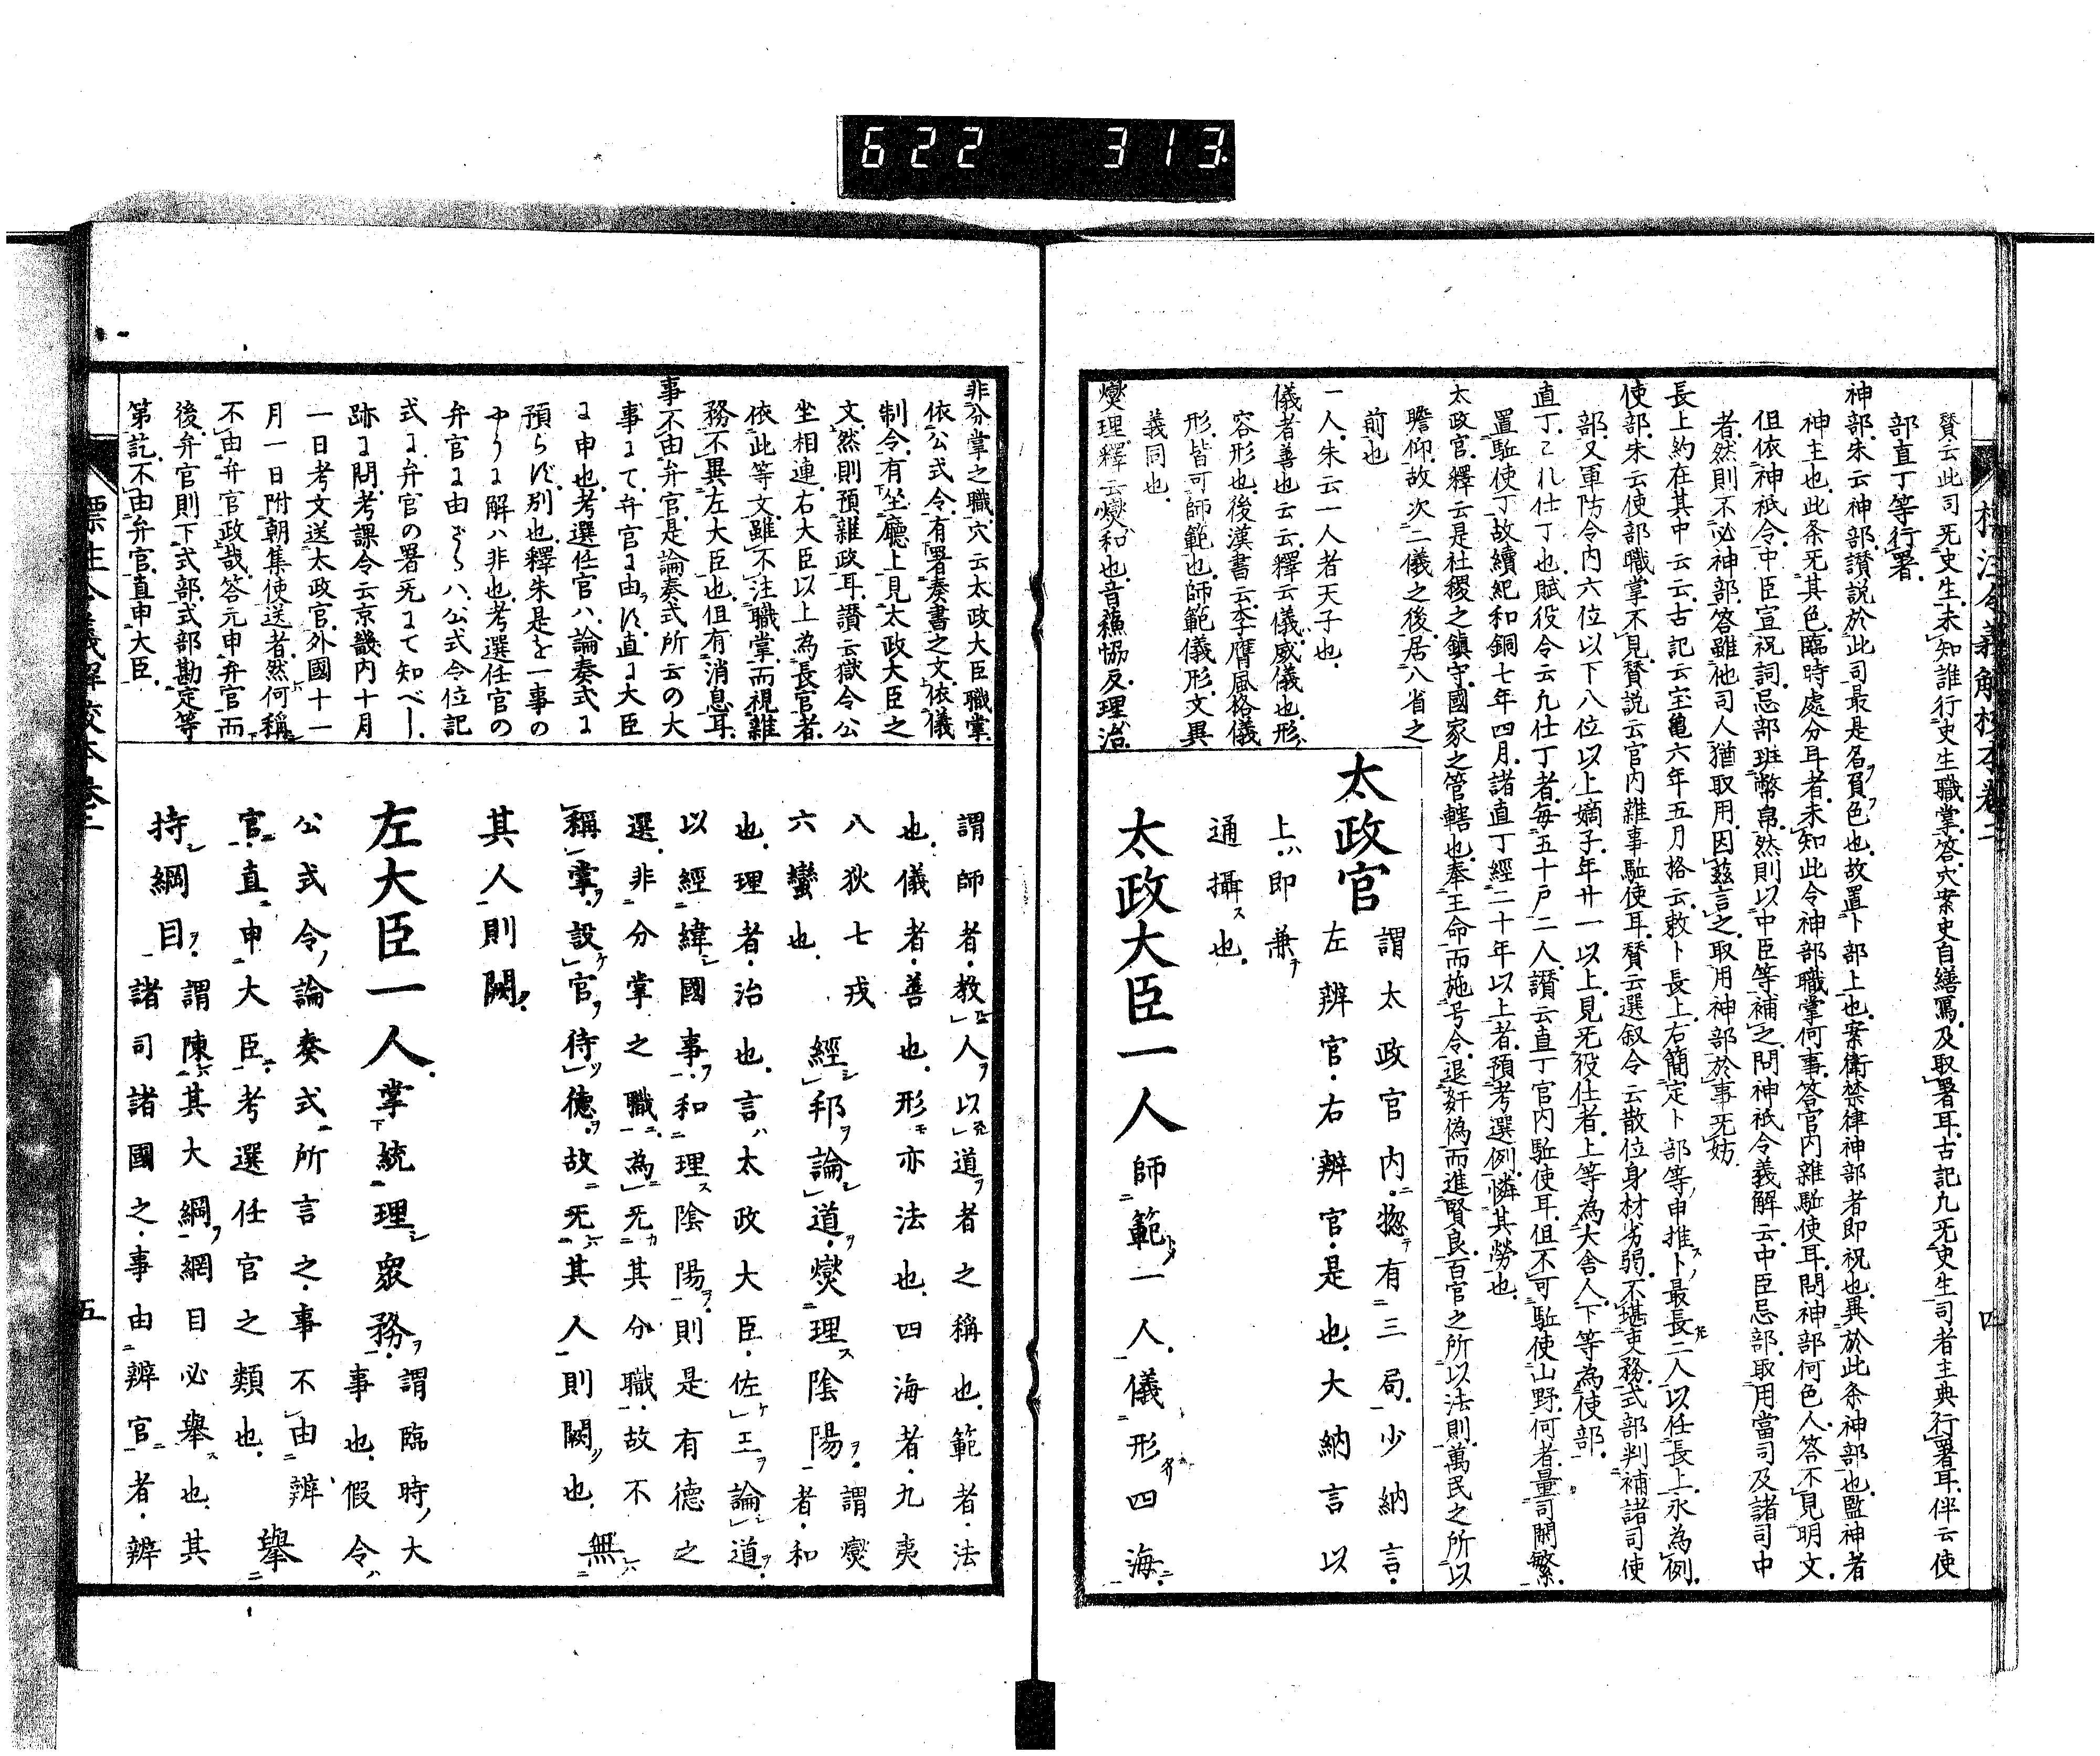 622 313
賛云此司旡史生.未知誰行史生職掌.答.穴案史自繕寫.及取署耳.古記九旡史生司者主典行署耳.伴云使
部直丁等行署.
神部.朱云神部.讃説於此司最是名負色也.故置卜部上也.案衛禁律神部者即祝也.異於此条神部也.監神者
神主也.此条旡其色.臨時處分耳者.未知此令神部職掌何事.答官内雜駈使耳.問神部何色人.答不見明文.
但依神祇令.中臣宣祝詞.忌部班幣帛.然則以中臣等補之.問神祇令義解云.中臣忌部.取用當司及諸司中
者.然則不必神部.答雖他司人猶取用.因茲言之.取用神部於事旡妨.
長上約在其中云云.古記云宝亀六年五月格云.敕卜長上.右簡定卜部等申推卜ノ最長二人以任長上.永為例.
使部.朱云使部職掌不見.賛説云官内雜事駈使耳.賛云選叙令云散位身材劣弱.不堪吏務.式部判補諸司使
部.又軍防令内六位以下八位以上嫡子.年廿一以上.見旡役仕者.上等為大舎人.下等為使部.
直丁.これ仕丁也.賦役令云九仕丁者.毎五十戸二人.讃云直丁官内駈使耳.但不可駈使山野.何者.量司閑繁.
置駈使丁.故續紀和銅七年四月.諸直丁經二十年以上者.預考選例.憐其勞也.
太政官.釋云是社稷之鎮守.國家之管轄也.奉王命而施号令.退姧偽而進賢良.百官之所以法則.萬民之所以
瞻仰.故次二儀之後.居八省之
前也
一人.朱云一人者天子也.
儀者善也云云.釋云儀.威儀也.形ハ
容形也.後漢書云.李膺風格儀
形.皆可師範也.師範儀形.文異
義同也.
燮理.釋云燮.和也.音穌協反.理治.
太政官
謂太政官内.惣有三局.少納言.
左辨官.右辨官.是也.大納言以
上ハ.即兼
通攝ス也.
太政大臣一人
師範一人.儀形四海.
非分掌之職.穴云太政大臣職掌.
依公式令.有署奏書之文.依儀
制令.有坐廳上見太政大臣之
文.然則預雜政耳.讃云獄令公
坐相連.右大臣以上為長官者.
依此等文.雖不注職掌.而視雜
務不異左大臣也.但有消息耳.
事不由弁官.是論奏式所云の大
事にて.弁官に由らず.直に大臣
に申也.考選任官ハ.論奏式に
預らず.別也.釋朱是を一事の
やうに解ハ非也.考選任官の
弁官に由ざるハ.公式令位記
式に.弁官の署旡にて知べし.
跡に問.考課令云京畿内十月
一日考文送太政官.外國十一
月一日附朝集使送者.然何稱
不由弁官政哉.答元申弁官而
後.弁官則下式部.式部勘定等
第訖.不由弁官.直申大臣.
謂師者.教人以道者之稱也.範者.法
也.儀者.善也.形亦法也.四海者.九夷
八狄七戎
六蠻也.
經邦論道.燮理陰陽.
謂燮者.和
也.理者.治也.言ハ太政大臣.佐王論道.
以經緯國事.和理陰陽.則是有德之
選.非分掌之職.為旡其分職.故不
稱掌.設官待德.故旡其人則闕也.
無
其人則闕.
左大臣一人.
掌統理衆務.
謂臨時大
事也.假令ハ
公式令論奏式所言之.事不由辨
官.直申大臣.考選任官之類也.
擧
持綱目.
謂陳其大綱.網目必擧也.其
諸司諸國之事由辨官者.辨
四
五